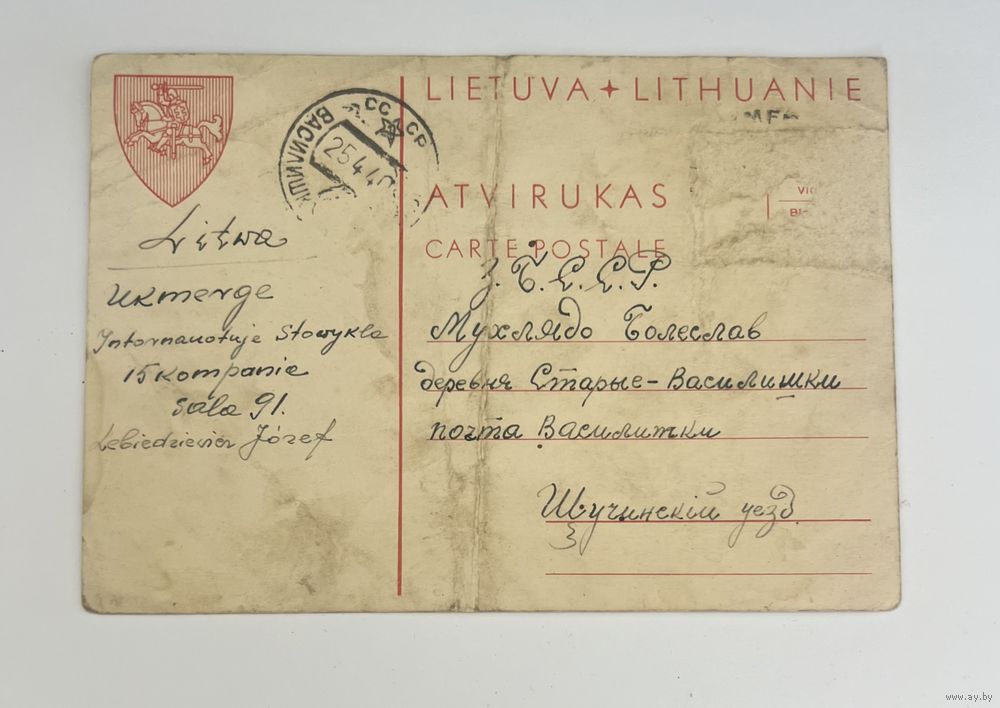 LIETUVA + LITHUANIE
ATVIRUKAS
CARTE POSTALE
СССР
25.4.4
Litwa
Ukmerge
Internauotuje Stowykla
15 Kompanie
sala 91.
Lebiedziewicz Józef
З. Б. С. С. Р.
Мухлядо Болеслав
деревня Старые-Василишки
почта Василишки
Щучинскій уезд.
www.ay.by